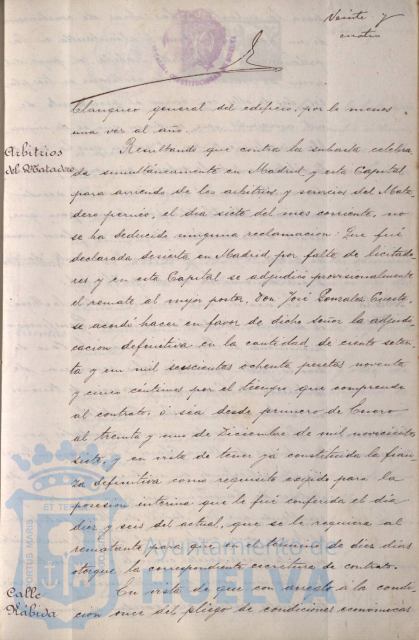 Veinte y
cuatro
blanqueo general del edificio, por lo menos
una vez al año.
Arbitrios
del Matadero
Resultando que contra la subasta celebra-
da simultaneamente en Madrid y esta Capital
para arriendo de los arbitrios y servicios del Mata-
dero pernio, el dia siete del mes corriente, no
se ha deducido ninguna reclamacion: Que fué
declarada desierta en Madrid por falta de licitado-
res y en esta Capital se adjudicó provisionalmente
el remate al mejor postor, Don José Gonzalez Cuesta
se acordó hacer en favor de dicho señor la adjudi-
cacion definitiva en la cantidad de ciento seten-
ta y un mil seiscientos ochenta pesetas noventa
y cinco céntimos por el tiempo que comprende
el contrato, ó sea desde primero de Enero
al treinta y uno de Diciembre de mil novecientos
siete, y en vista de tener yá constituida la fian-
za definitiva como requisito exigido para la
posesion interina que le fué conferida el dia
diez y seis del actual, que se le requiera al
rematante para que en el término de diez dias
otorgue la correspondiente escritura de contrato.
Calle
Rábida
En vista de que con arreglo á la condi-
cion once del pliego de condiciones económicas
Ayuntamiento de
HUELVA
PORTUS MARIS
ET TER